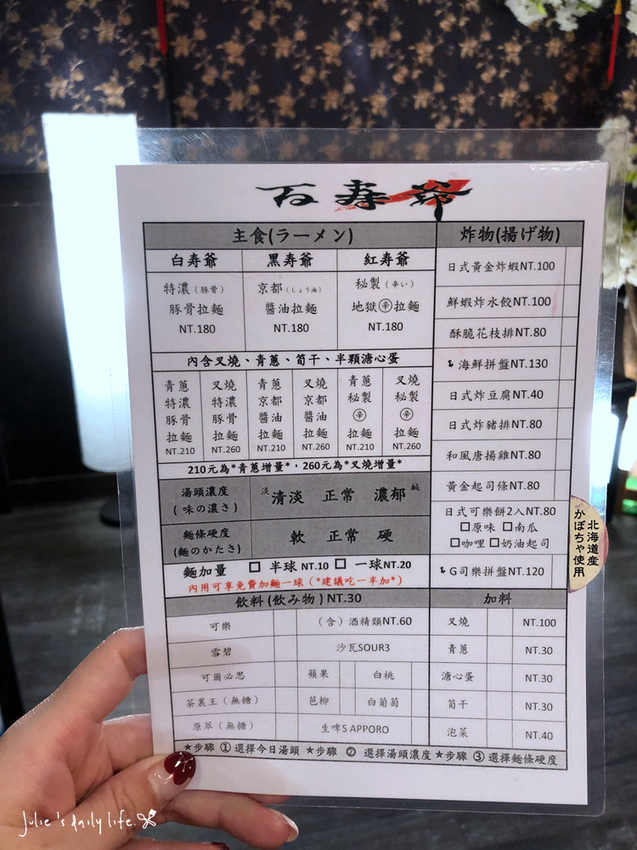 百寿爺
主食(ラーメン)
白寿爺 黑寿爺 紅寿爺
特濃(豚骨) 京都(しょう油) 秘製(辛い)
豚骨拉麵 醬油拉麵 地獄辛拉麵
NT.180 NT.180 NT.180
內含叉燒、青蔥、筍干、半顆溏心蛋
青蔥 叉燒 青蔥 叉燒 青蔥 叉燒
特濃 特濃 京都 京都 秘製 秘製
豚骨 豚骨 醬油 醬油 辛 辛
拉麵 拉麵 拉麵 拉麵 拉麵 拉麵
NT.210 NT.260 NT.210 NT.260 NT.210 NT.260
210元為*青蔥增量*，260為*叉燒增量*
湯頭濃度 淡 清淡 正常 濃郁 鹹
(味の濃さ)
麵條硬度 軟 正常 硬
(麵のかたさ)
麵加量 □ 半球 NT.10 □ 一球NT.20
內用可享免費加麵一球(*建議吃一半加*)
炸物(揚げ物)
日式黃金炸蝦NT.100
鮮蝦炸水餃NT.100
酥脆花枝排NT.80
海鮮拼盤NT.130
日式炸豆腐NT.40
日式炸豬排NT.80
和風唐揚雞NT.80
黃金起司條NT.80
日式可樂餅2入NT.80
□原味 □南瓜
□咖哩 □奶油起司
G司樂拼盤NT.120
北海道産
かぼちゃ使用
飲料(飲み物) NT.30
可樂 (含)酒精類NT.60
雪碧 沙瓦SOUR3
可爾必思 蘋果 白桃
茶裏王(無糖) 芭柳 白葡萄
原萃(無糖) 生啤SAPPORO
加料
叉燒 NT.100
青蔥 NT.30
溏心蛋 NT.30
筍干 NT.30
泡菜 NT.40
★步驟 ① 選擇今日湯頭 ★步驟 ② 選擇湯頭濃度 ★步驟 ③ 選擇麵條硬度
Julie's daily life.